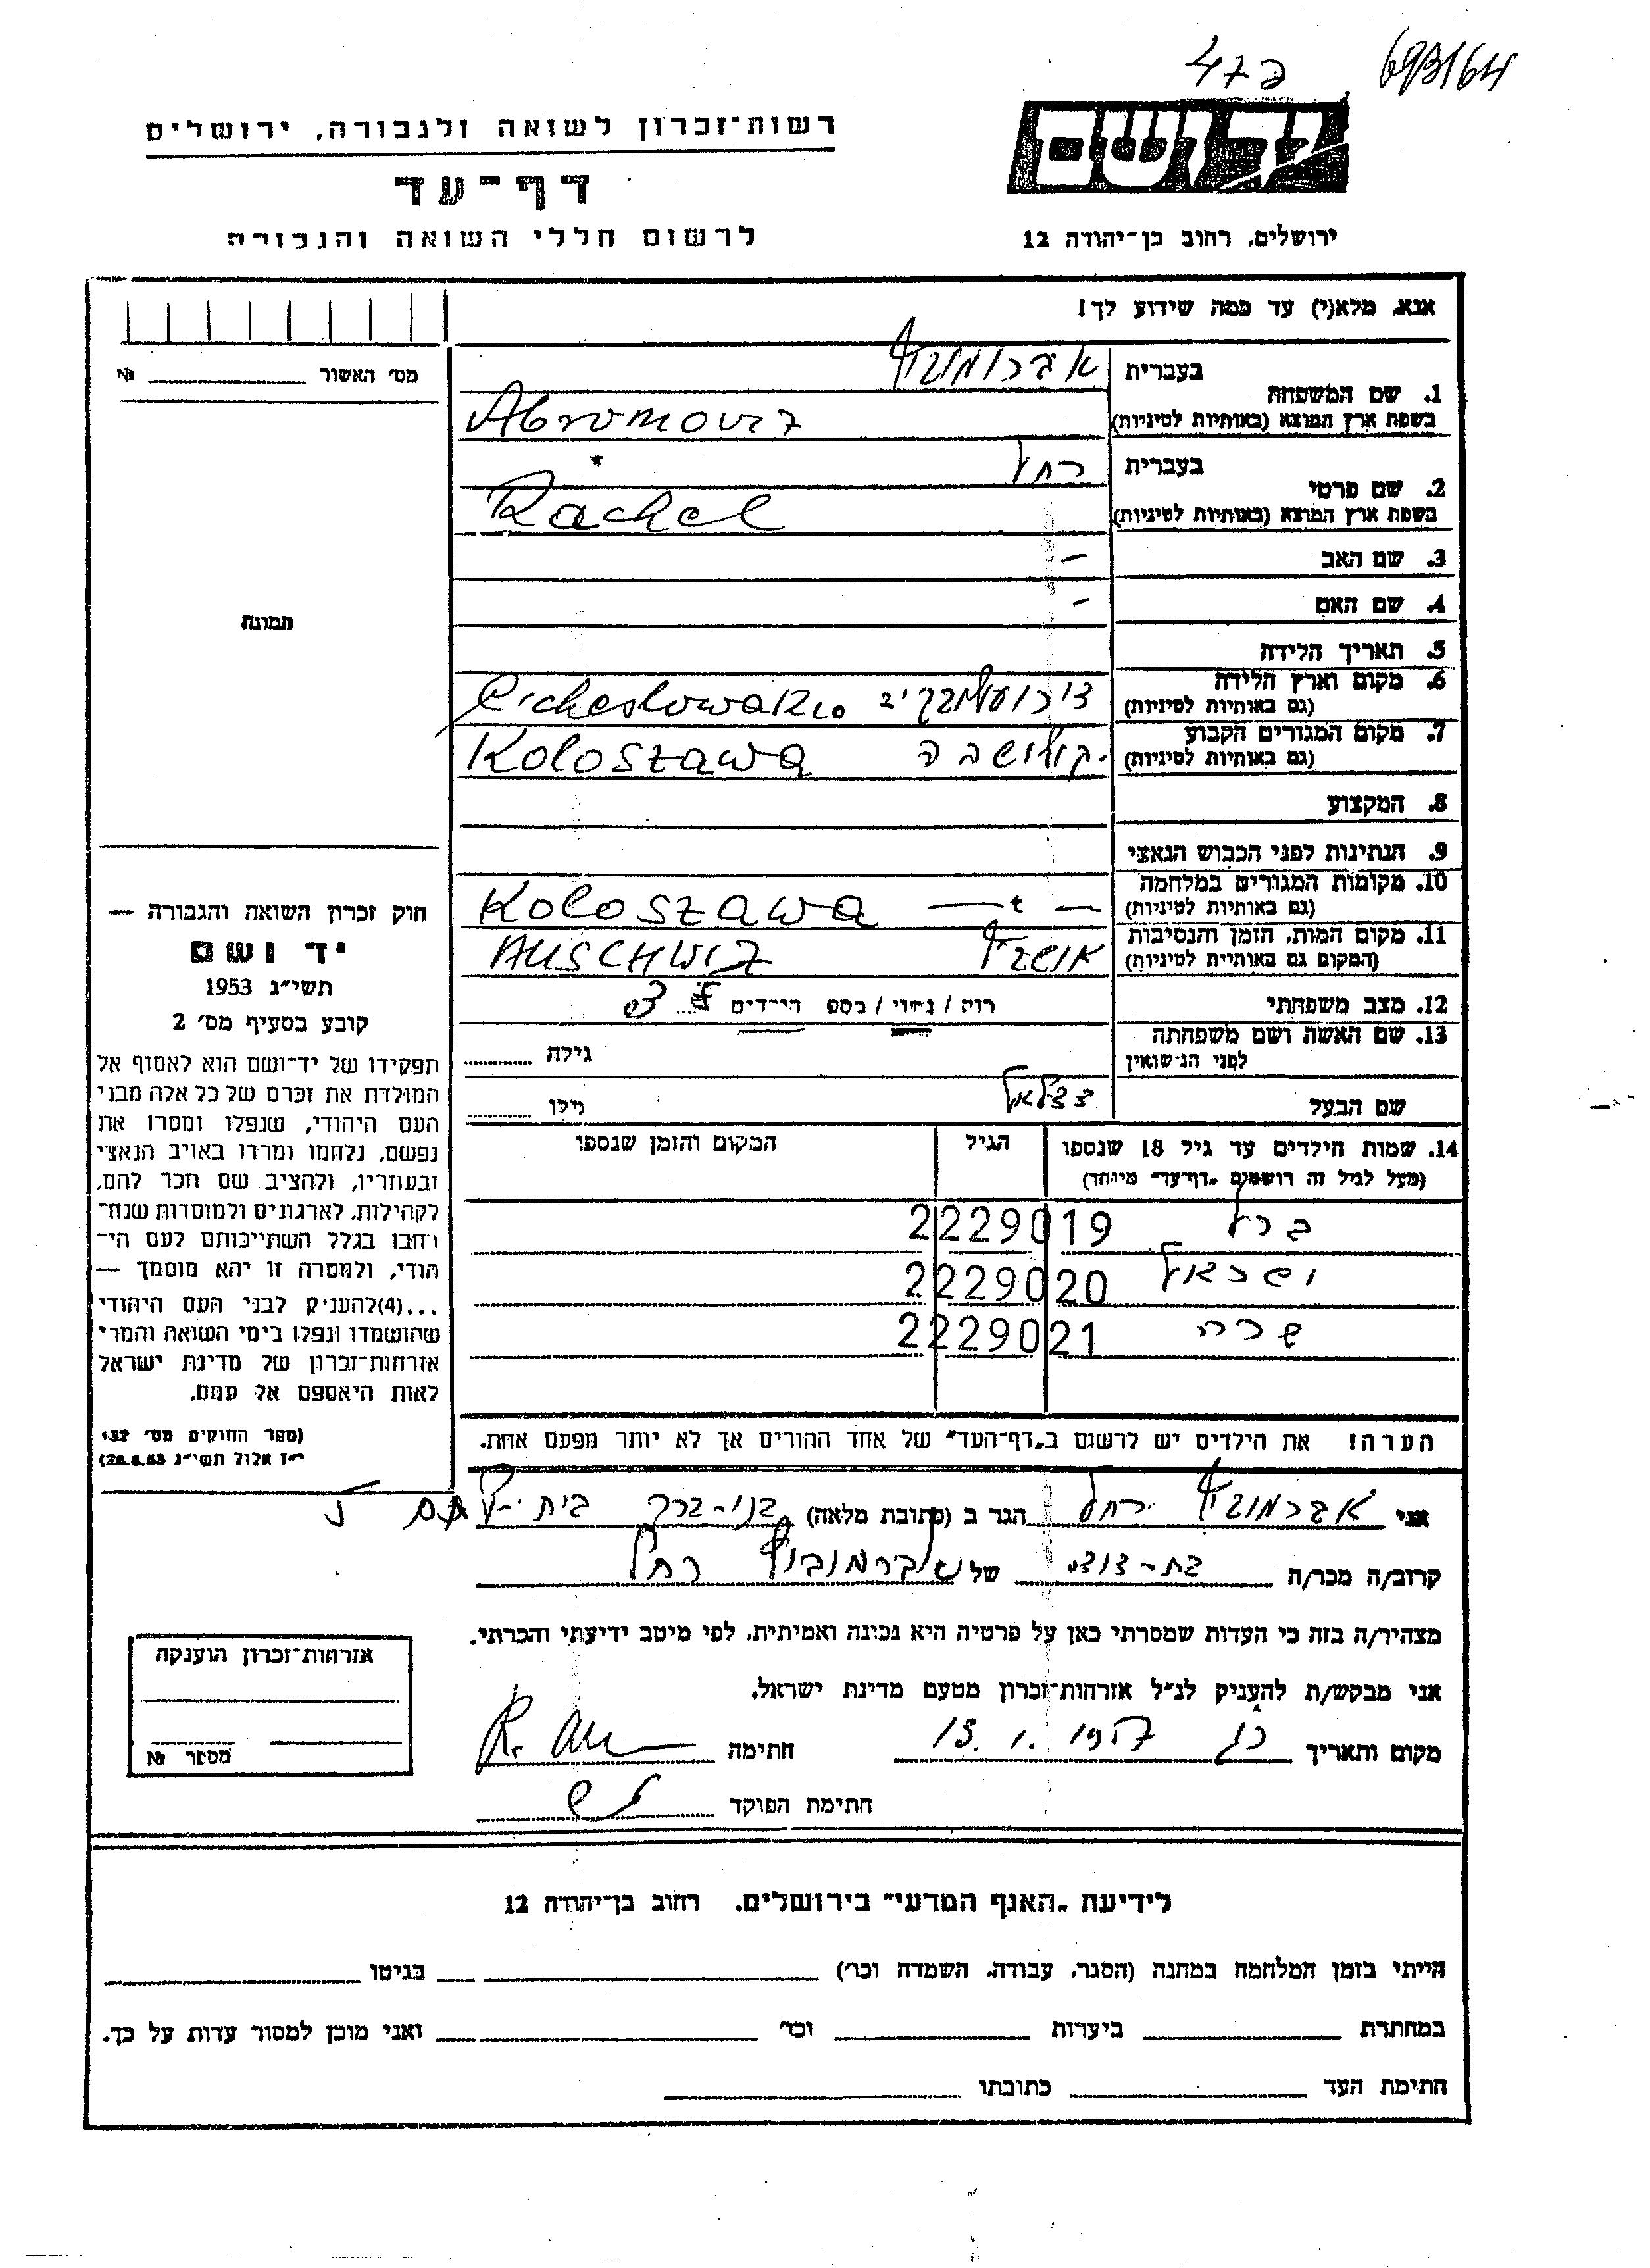 693164
רשות־זכרון לשואה ולגבורה, ירושלים
דף־עד
לרשום חללי השואה והגבורה
יד ושם
ירושלים, רחוב בן־יהודה 12
אנא, מלא(י) עד כמה שידוע לך!
מס׳ האשור № 
1. שם המשפחה בעברית אברמוביץ
בשפת ארץ המוצא (באותיות לטיניות) Abromovız
2. שם פרטי בעברית רחל
בשפת ארץ המוצא (באותיות לטיניות) Rachel
3. שם האב –
4. שם האם –
5. תאריך הלידה
6. מקום וארץ הלידה
(גם באותיות לטיניות)
7. מקום המגורים הקבוע
(גם באותיות לטיניות) Koloszawa
8. המקצוע
9. הנתינות לפני הכבוש הנאצי
10. מקומות המגורים במלחמה
(גם באותיות לטיניות) Koloszawa
11. מקום המות, הזמן והנסיבות
(המקום גם באותיות לטיניות) אושביץ AUSCHWIZ
12. מצב משפחתי רוק / נשוי / מספר הילדים
13. שם האשה ושם משפחתה
לפני הנישואין גילה
שם הבעל בצלאל גילו
14. שמות הילדים עד גיל 18 שנספו הגיל המקום והזמן שנספו
(מעל לגיל זה רושמים „דף־עד״ מיוחד)
2229019
ישראל 2229020
שרה 2229021
הערה! את הילדים יש לרשום ב„דף־העד״ של אחד ההורים אך לא יותר מפעם אחת.
תמונה
חוק זכרון השואה והגבורה —
יד ושם
תשי״ג 1953
קובע בסעיף מס׳ 2
תפקידו של יד־ושם הוא לאסוף אל
המולדת את זכרם של כל אלה מבני
העם היהודי, שנפלו ומסרו את
נפשם, נלחמו ומרדו באויב הנאצי
ובעוזריו, ולהציב שם וזכר להם,
לקהילות, לארגונים ולמוסדות שנח־
רבו בגלל השתייכותם לעם הי־
הודי, ולמטרה זו יהא מוסמך —
...(4)להעניק לבני העם היהודי
שהושמדו ונפלו בימי השואה והמרי
אזרחות־זכרון של מדינת ישראל
לאות היאספם אל עמם.
(ספר החוקים מס׳ 132
י״ז אלול תשי״ג 28.8.53)
אני אברמוביץ רחל הגר ב (כתובת מלאה) בני-ברק בית
קרוב/ה מכר/ה בת-דודה של אברמוביץ רחל
מצהיר/ה בזה כי העדות שמסרתי כאן על פרטיה היא נכונה ואמיתית, לפי מיטב ידיעתי והכרתי.
אני מבקש/ת להעניק לנ״ל אזרחות־זכרון מטעם מדינת ישראל.
מקום ותאריך 15.1.1957 חתימה
חתימת הפוקד
אזרחות־זכרון הוענקה
מספר №
לידיעת „האגף המדעי״ בירושלים, רחוב בן־יהודה 12
הייתי בזמן המלחמה במחנה (הסגר, עבודה, השמדה וכו׳) בגיטו
במחתרת ביערות וכו׳ ואני מוכן למסור עדות על כך.
חתימת העד כתובתו